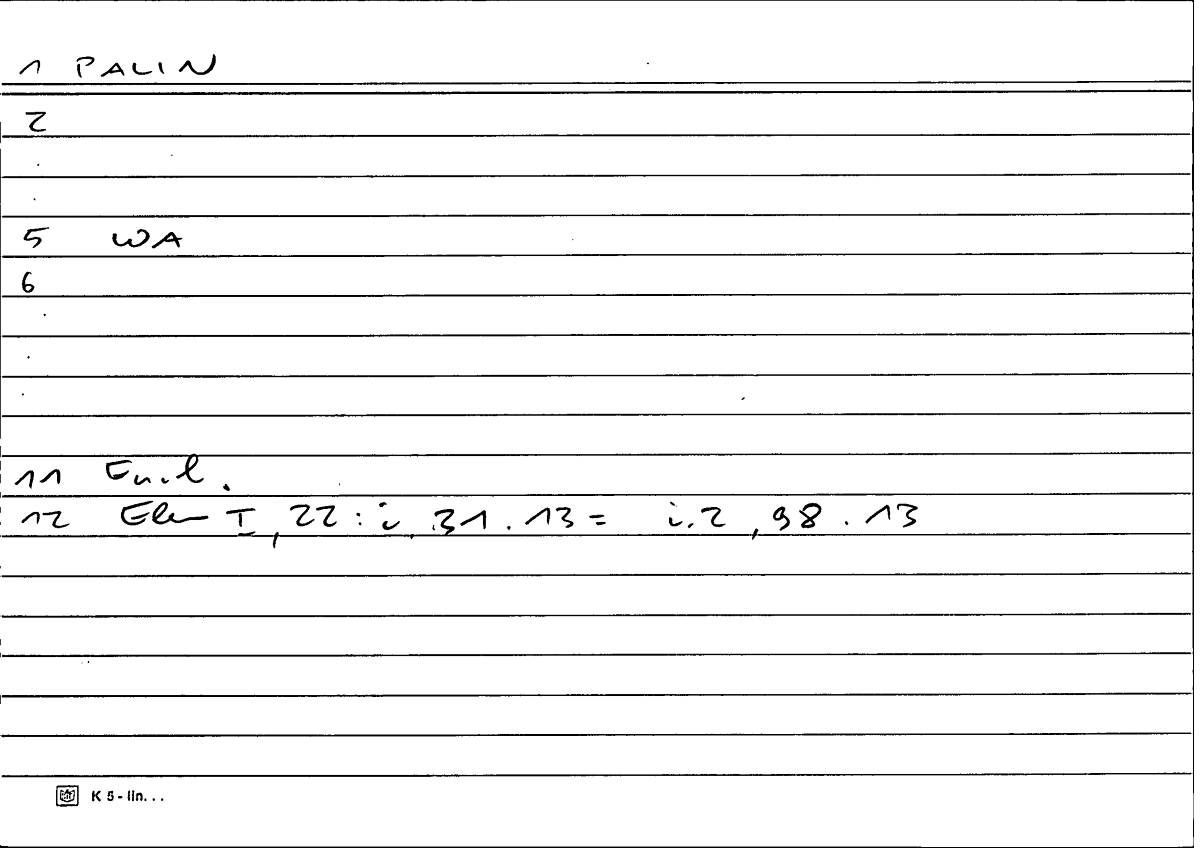 1 PALIN
2
5 WA
6
11 Eucl.
12 Elem I, 22: i, 31.13 = i.2, 98.13
K 5 - lin...